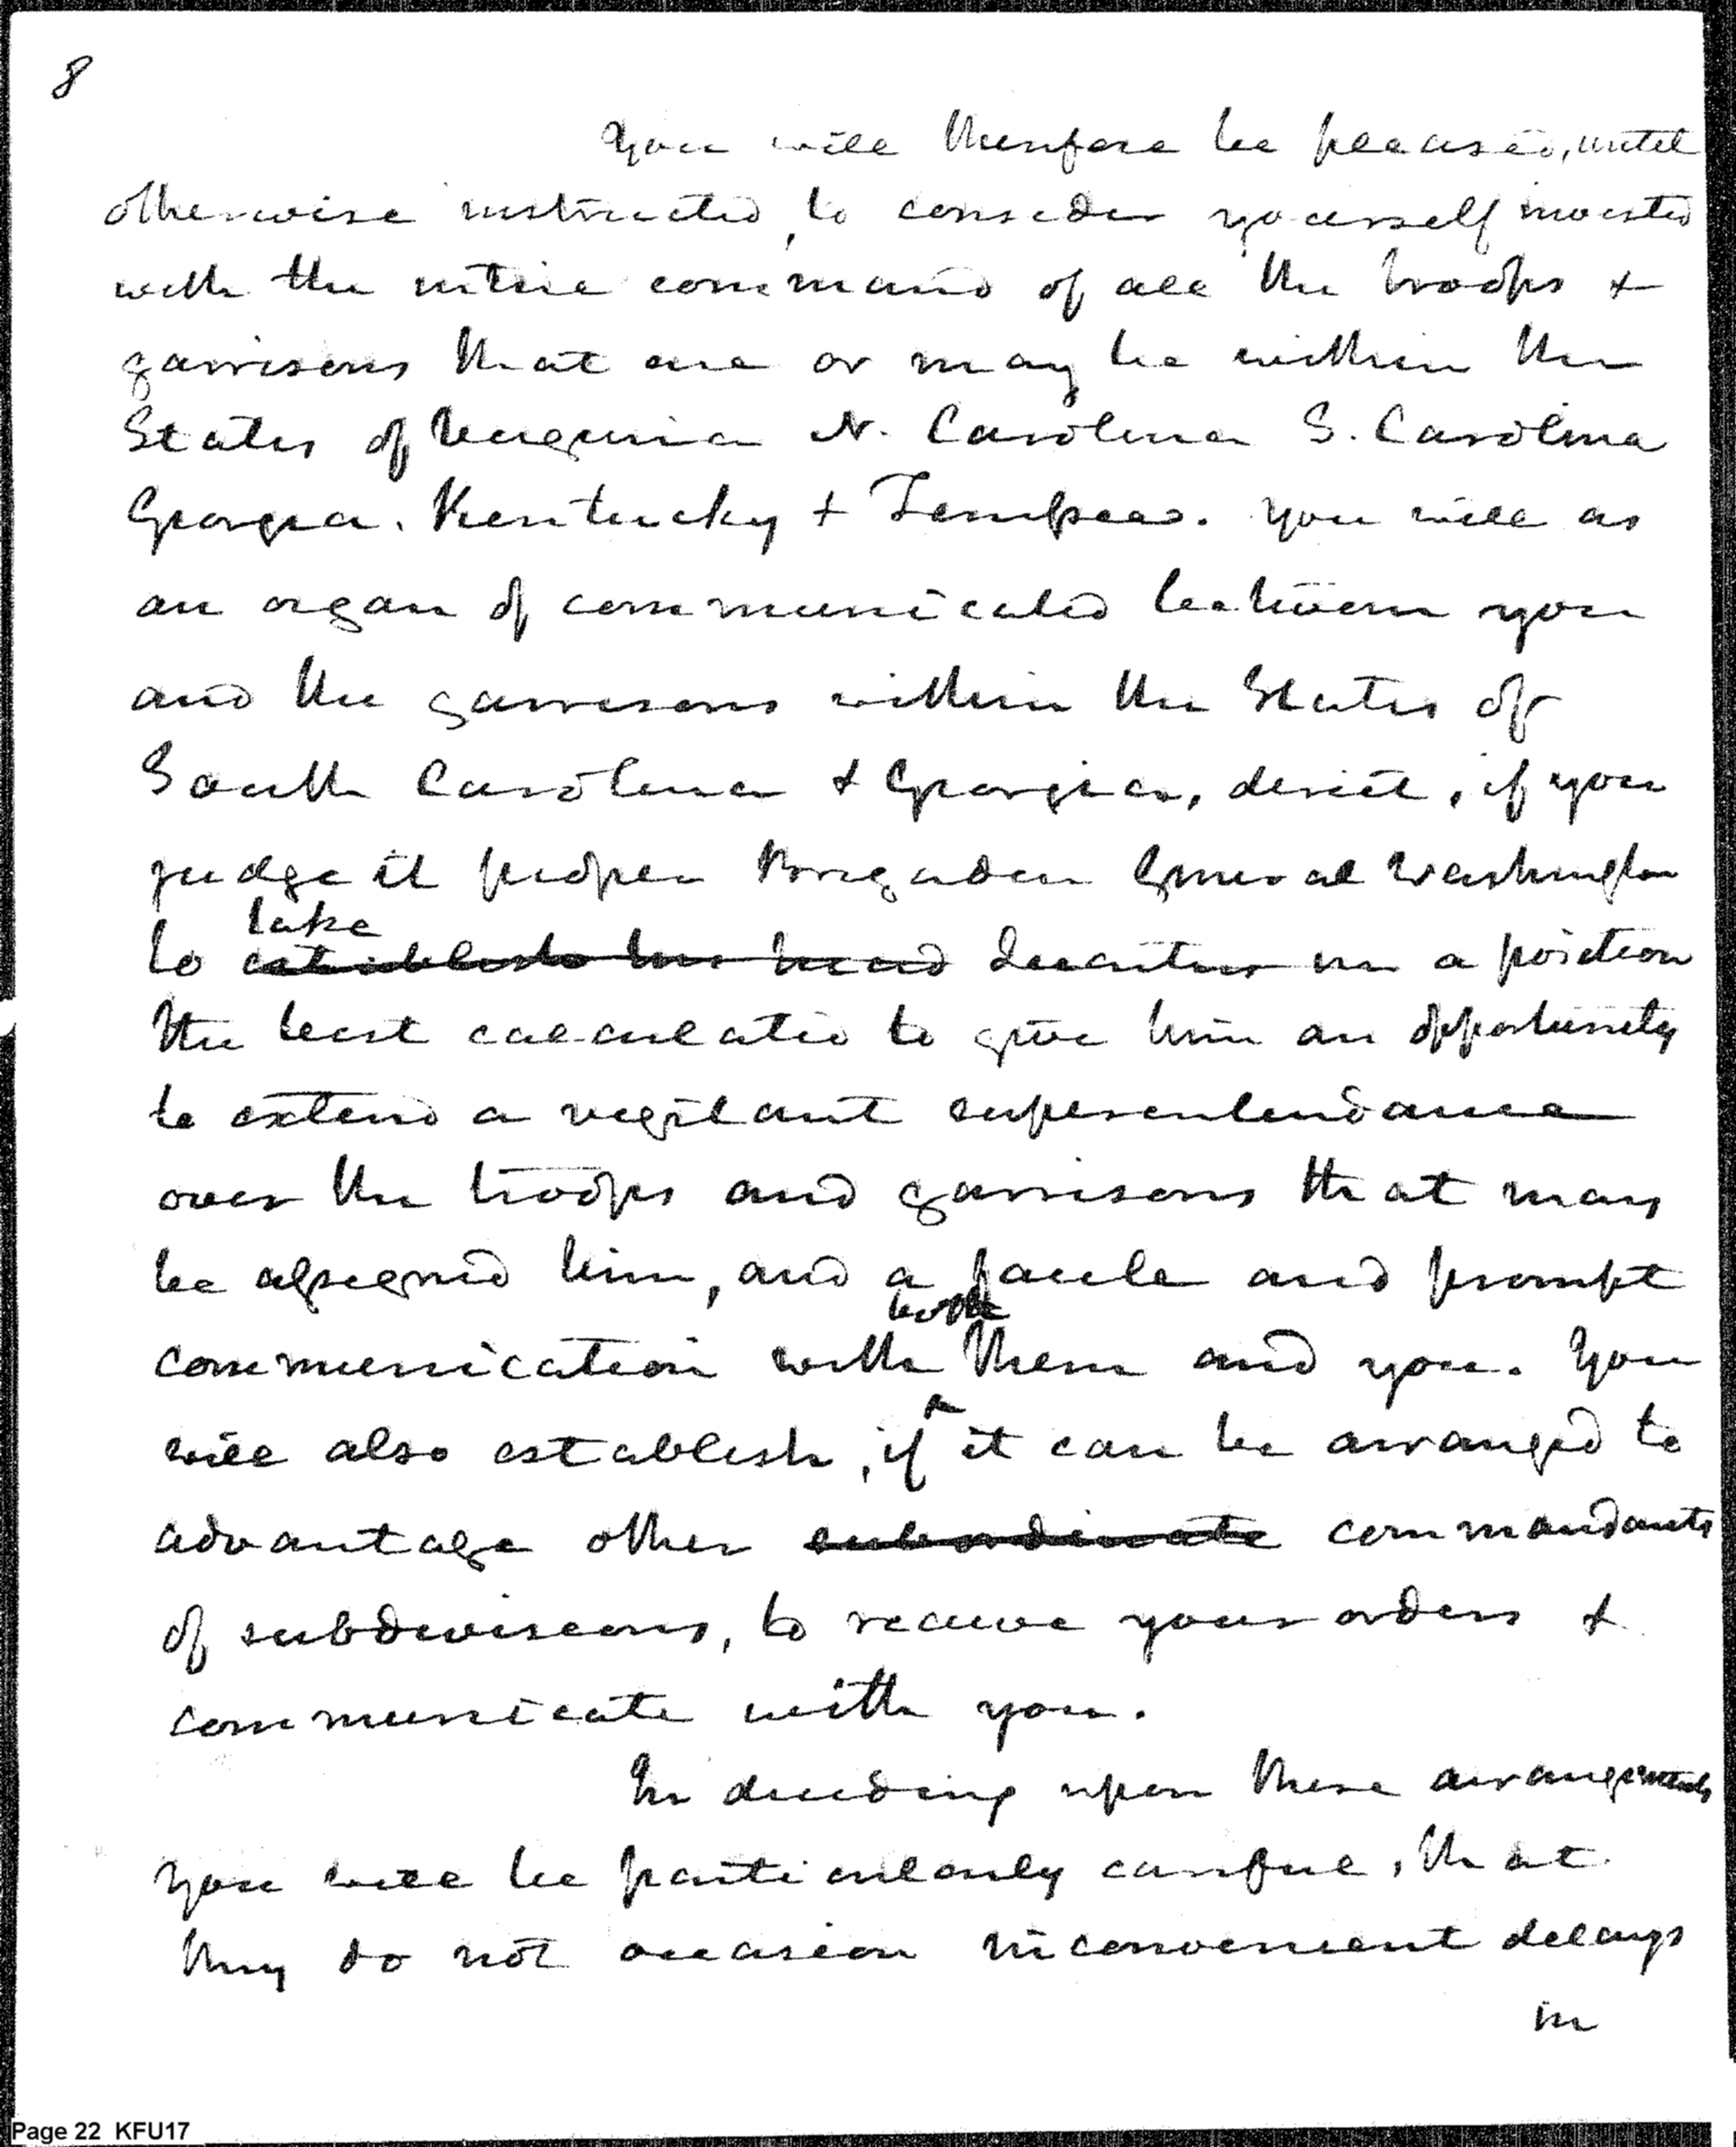 8
You will therefore be pleased, until
otherwise instructed, to consider yourself invested
with the entire command of all the troops +
garrisons that are or may be within the
States of Virginia N. Carolina S. Carolina
Georgia. Kentucky + Tennessee. You will as
an organ of communicated between you
and the garrisons within the States of
South Carolina + Georgia, direct, if you
judge it proper Brigadier General Washington
take
to establish his head in a position
the best calculated to give him an opportunity
to extend a vigilant superentendance
over the troops and garrisons that may
be assigned him, and a facile and prompt
both
communication with them and you. You
will also establish, if it can be arranged to
advantage other subordinate commandants
of subdivisions, to receive your orders +
communicate with you.
In deciding upon these arrangements
you will be particularly careful, that
they do not occasion inconvenient delays
in
Page 22 KFU17